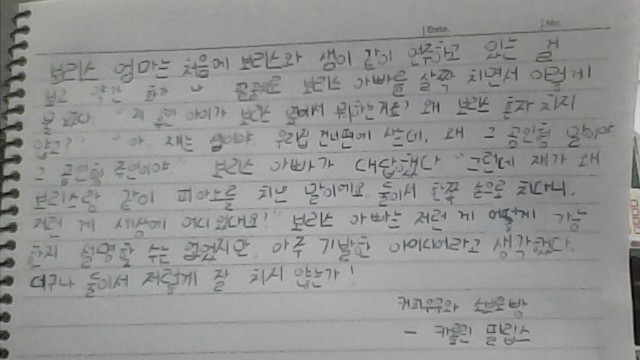 Date No
보리스 엄마는 처음에 보리스와 샘이 같이 연주하고 있는 걸
보고 약간 화가 나 보리스 아빠를 살짝 치면서 이렇게
물었다. "저 아이가 보리스 옆에서 뭐하는거죠? 왜 보리스 혼자 치지
않고?" "아, 쟤는 샘이야. 우리집 건너편에 사는데, 왜 그 곰인형 말이야
그 곰인형 주인이야" 보리스 아빠가 대답했다 "그런데 쟤가 왜
보리스랑 같이 피아노를 치냔 말이에요. 둘이서 한쪽 손으로 치다니,
저런 게 세상에 어디있대요!" 보리스 아빠는 저런 게 어떻게 가능
한지 설명할 수는 없었지만, 아주 기발한 아이디어라고 생각했다.
더구나 둘이서 저렇게 잘 치지 않는가!
커피우유와 소보로빵
- 카롤린 필립스